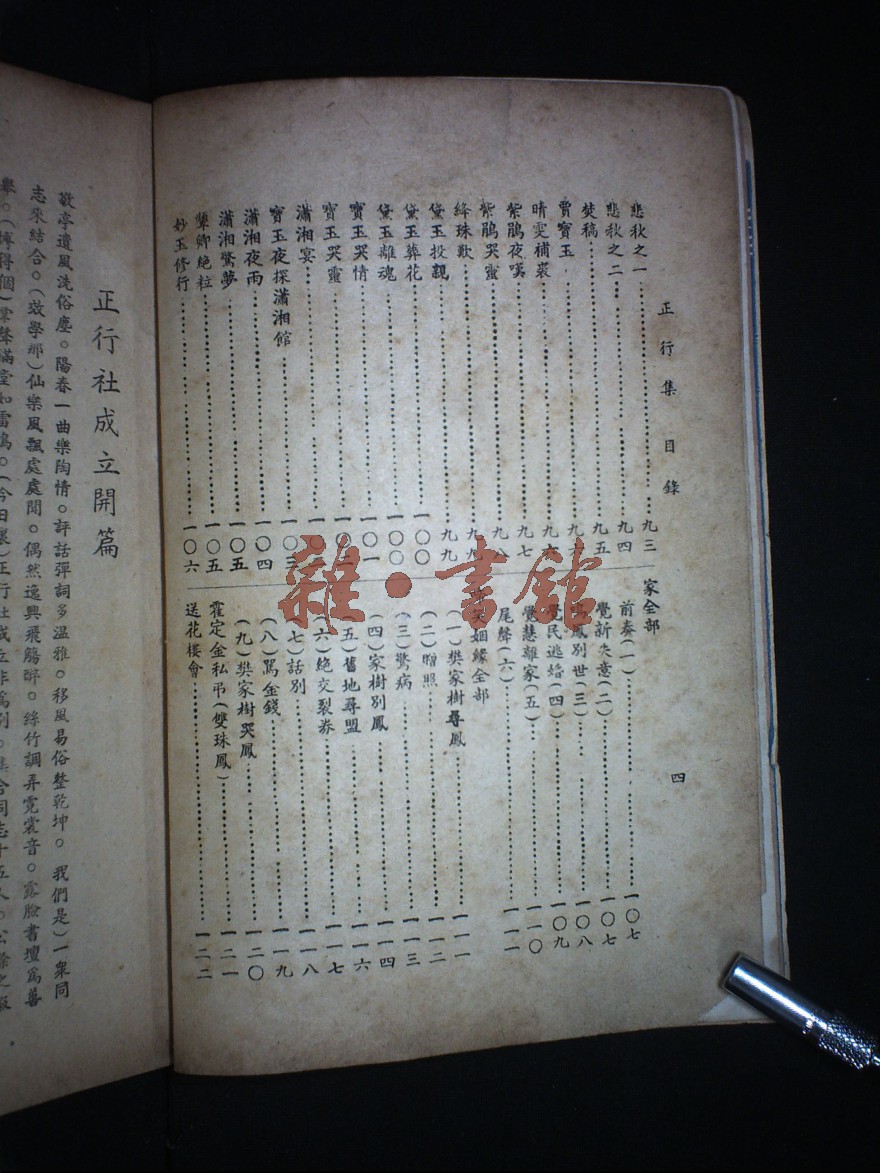 正行集 目錄
四
悲秋之一……九三
悲秋之二……九四
焚稿……九五
賈寶玉……九六
晴雯補裘……九六
紫鵑夜嘆……九七
紫鵑哭靈……九八
絳珠歎……九九
黛玉投親……九九
黛玉葬花……一〇〇
黛玉離魂……一〇〇
寶玉哭情……一〇一
寶玉哭靈……一〇二
瀟湘宴……一〇
寶玉夜探瀟湘館……一〇三
瀟湘夜雨……一〇四
瀟湘驚夢……一〇五
顰卿絶粒……一〇五
妙玉修行……一〇六
家全部
前奏(一)……一〇七
覺新失意(二)……一〇七
鳳別世(三)……一〇八
覺民逃婚(四)……一〇九
覺慧離家(五)……一一〇
尾聲(六)……一一一
笑姻緣全部
(一)樊家樹尋鳳……一一一
(二)贈照……一一二
(三)驚病……一一三
(四)家樹別鳳……一一四
(五)舊地尋盟……一一六
(六)絶交裂券……一一七
(七)話別……一一八
(八)罵金錢……一一九
(九)樊家樹哭鳳……一二〇
霍定金私弔(雙珠鳳)……一二一
送花樓會……一二二
雜·書館
正行社成立開篇
敬亭遺風洗俗塵。陽春一曲樂陶情。評話彈詞多温雅。移風易俗整乾坤。我們是)一衆同
志來結合。(效學那)仙樂風飄處處聞。偶然逸興飛觴醉。絲竹調弄霓裳音。露臉書壇爲善
舉。(博得個)掌聲滿堂如雷鳴。(今日裏)正行社成立非爲別。集合同志十五人。公餘之暇